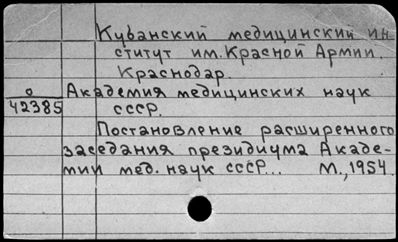 Кубанский медицинский ин-
ститут им. Красной Армии.
Краснодар.
о
42385
Академия медицинских наук
СССР.
Постановление расширенного
заседания президиума Акаде-
мии мед. наук СССР... М., 1954.